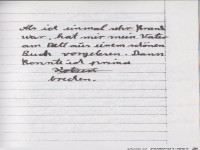 Als ich einmal sehr krank
war, hat mir mein Vater
am Bett aus einem schönen
Buch vorgelesen. Dann
konnte ich prima
brechen.